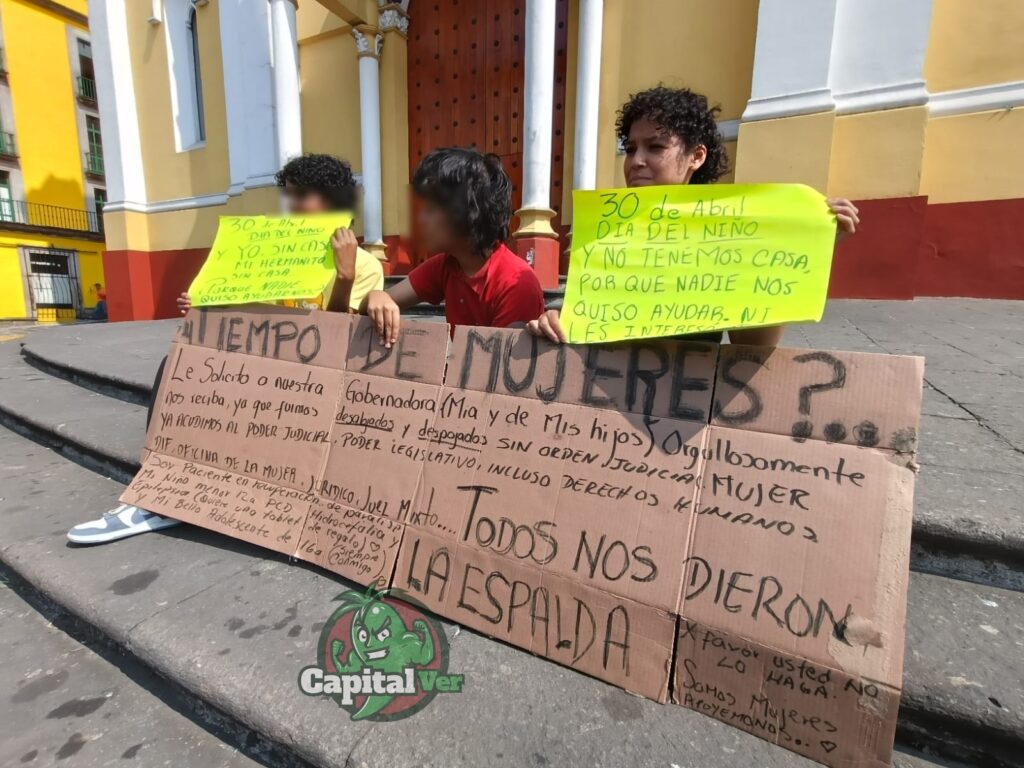 30 de Abril
DIA DEL NIÑO
Y YO, SIN CASA
MI HERMANITO
SIN CASA
PORQUE NADIE
QUISO AYUDARNOS
30 de Abril
DIA DEL NIÑO
Y NO TENEMOS CASA,
POR QUE NADIE NOS
QUISO AYUDAR. NI
LES INTERESA
¿TIEMPO DE MUJERES?...
Le Solicito a nuestra Gobernadora (Mia y de Mis hijos) Orgullosamente MUJER
nos reciba, ya que fuimos desalojados y despojados SIN ORDEN JUDICIAL
YA ACUDIMOS AL PODER JUDICIAL, PODER LEGISLATIVO, INCLUSO DERECHOS HUMANOS
DIF, OFICINA DE LA MUJER, JURIDICO, JUEZ MIXTO...
TODOS NOS DIERON
LA ESPALDA
Soy Paciente en recuperación de paralisis
Mi Niño menor 12a PCD Hidrocefalia y
Epilepsia (Quiere una tablet de regalo)
Y Mi Bello Adolescente de 16a (Siempre
Conmigo)
X favor usted NO
LO HAGA.
Somos Mujeres
APOYEMONOS...
Capital Ver